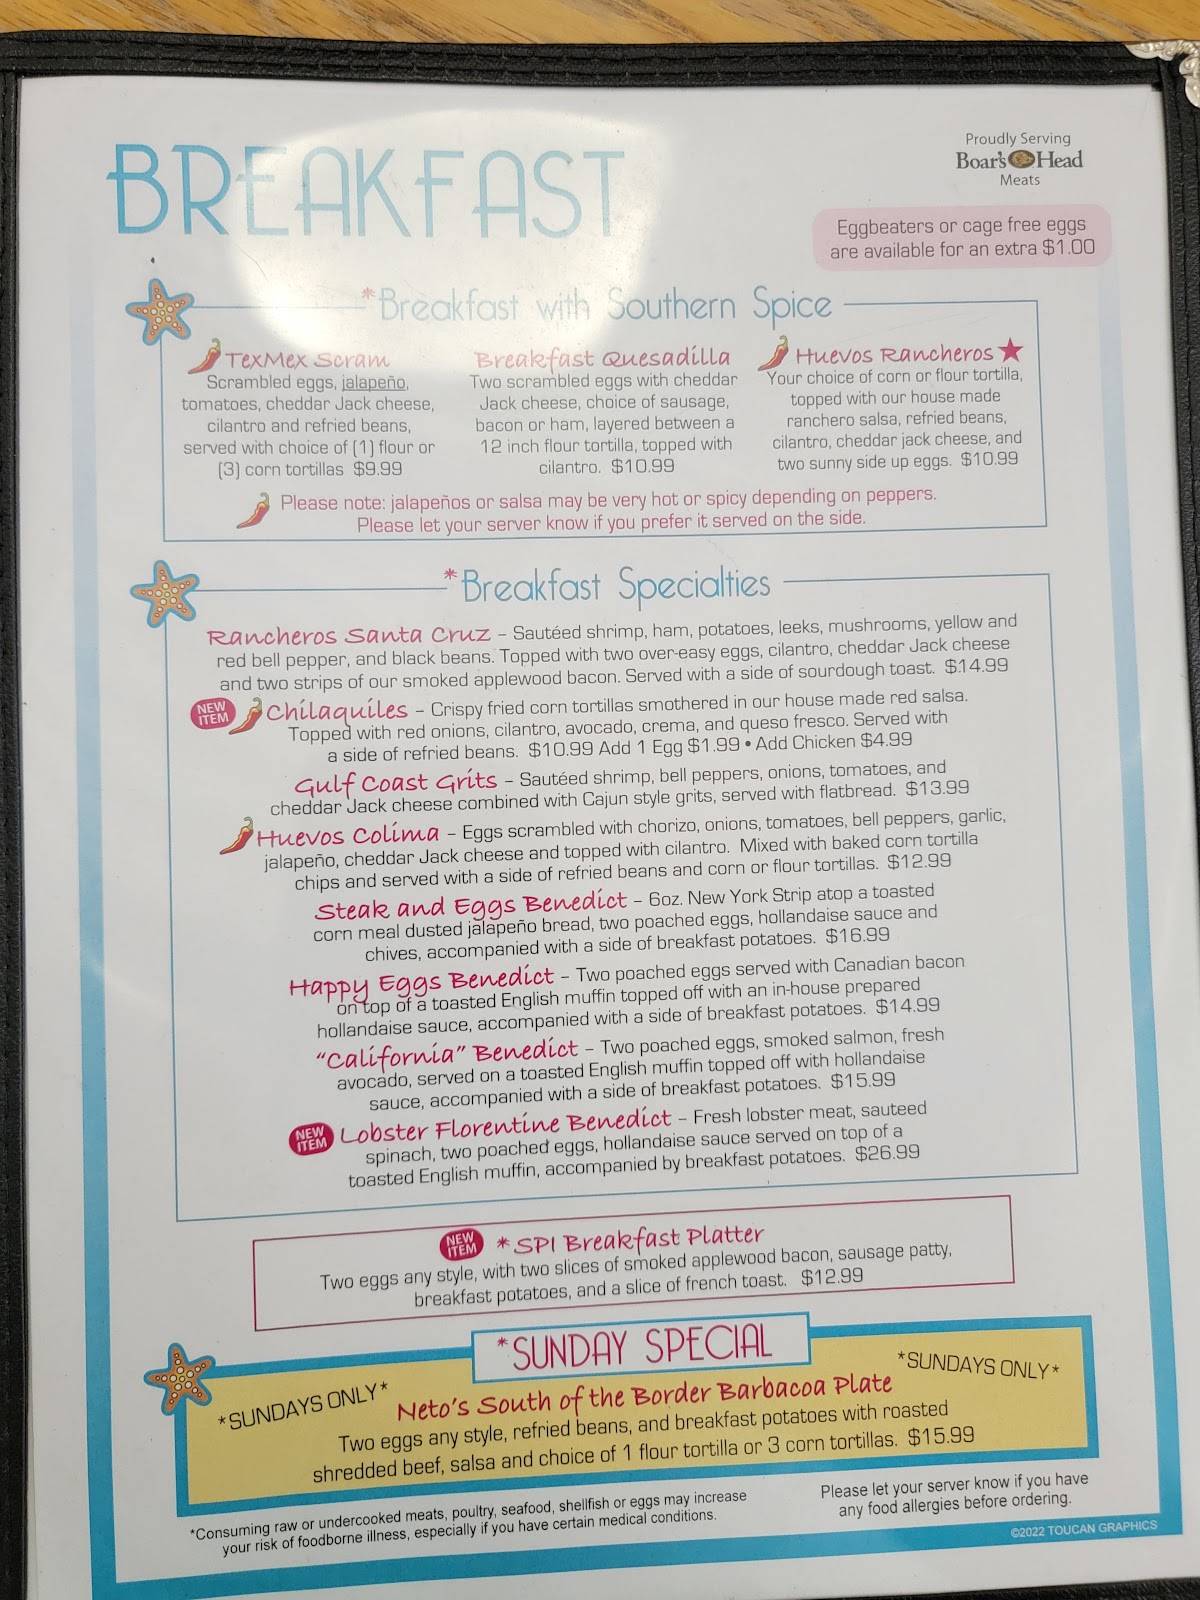 BREAKFAST
Proudly Serving
Boar's Head
Meats
Eggbeaters or cage free eggs
are available for an extra $1.00
*Breakfast with Southern Spice
TexMex Scram
Scrambled eggs, jalapeño,
tomatoes, cheddar Jack cheese,
cilantro and refried beans,
served with choice of (1) flour or
(3) corn tortillas $9.99
Breakfast Quesadilla
Two scrambled eggs with cheddar
Jack cheese, choice of sausage,
bacon or ham, layered between a
12 inch flour tortilla, topped with
cilantro. $10.99
Huevos Rancheros
Your choice of corn or flour tortilla,
topped with our house made
ranchero salsa, refried beans,
cilantro, cheddar jack cheese, and
two sunny side up eggs. $10.99
Please note: jalapeños or salsa may be very hot or spicy depending on peppers.
Please let your server know if you prefer it served on the side.
*Breakfast Specialties
Rancheros Santa Cruz – Sautéed shrimp, ham, potatoes, leeks, mushrooms, yellow and
red bell pepper, and black beans. Topped with two over-easy eggs, cilantro, cheddar Jack cheese
and two strips of our smoked applewood bacon. Served with a side of sourdough toast. $14.99
NEW
ITEM
Chilaquiles – Crispy fried corn tortillas smothered in our house made red salsa.
Topped with red onions, cilantro, avocado, crema, and queso fresco. Served with
a side of refried beans. $10.99 Add 1 Egg $1.99 • Add Chicken $4.99
Gulf Coast Grits – Sautéed shrimp, bell peppers, onions, tomatoes, and
cheddar Jack cheese combined with Cajun style grits, served with flatbread. $13.99
Huevos Colima – Eggs scrambled with chorizo, onions, tomatoes, bell peppers, garlic,
jalapeño, cheddar Jack cheese and topped with cilantro. Mixed with baked corn tortilla
chips and served with a side of refried beans and corn or flour tortillas. $12.99
Steak and Eggs Benedict – 6oz. New York Strip atop a toasted
corn meal dusted jalapeño bread, two poached eggs, hollandaise sauce and
chives, accompanied with a side of breakfast potatoes. $16.99
Happy Eggs Benedict – Two poached eggs served with Canadian bacon
on top of a toasted English muffin topped off with an in-house prepared
hollandaise sauce, accompanied with a side of breakfast potatoes. $14.99
"California" Benedict – Two poached eggs, smoked salmon, fresh
avocado, served on a toasted English muffin topped off with hollandaise
sauce, accompanied with a side of breakfast potatoes. $15.99
NEW
ITEM
Lobster Florentine Benedict – Fresh lobster meat, sauteed
spinach, two poached eggs, hollandaise sauce served on top of a
toasted English muffin, accompanied by breakfast potatoes. $26.99
NEW
ITEM
*SPI Breakfast Platter
Two eggs any style, with two slices of smoked applewood bacon, sausage patty,
breakfast potatoes, and a slice of french toast. $12.99
*SUNDAY SPECIAL
*SUNDAYS ONLY*
*SUNDAYS ONLY*
Neto's South of the Border Barbacoa Plate
Two eggs any style, refried beans, and breakfast potatoes with roasted
shredded beef, salsa and choice of 1 flour tortilla or 3 corn tortillas. $15.99
*Consuming raw or undercooked meats, poultry, seafood, shellfish or eggs may increase
your risk of foodborne illness, especially if you have certain medical conditions.
Please let your server know if you have
any food allergies before ordering.
©2022 TOUCAN GRAPHICS